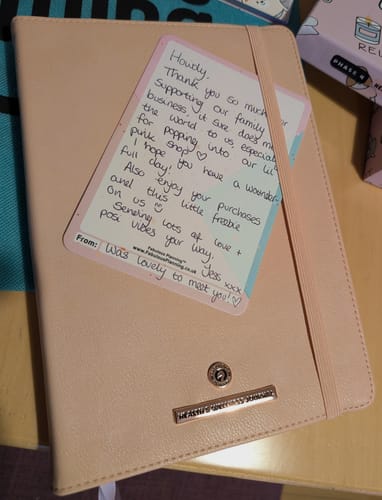 Howdy,
Thank you so much for
supporting our family
business, it sure does me
the world to us, especial
for popping into our lil
punk shop ♡
I hope you have a wonder-
full day!
Also enjoy your purchases
and this little freebie
on us ☺
Sending lots of love +
posi vibes your way.
Jess xxx
Fabulous Planning™
www.FabulousPlanning.co.uk
From: Was lovely to meet you! ♡
HEALTH & WELLNESS JOURNAL
PHASE
REL